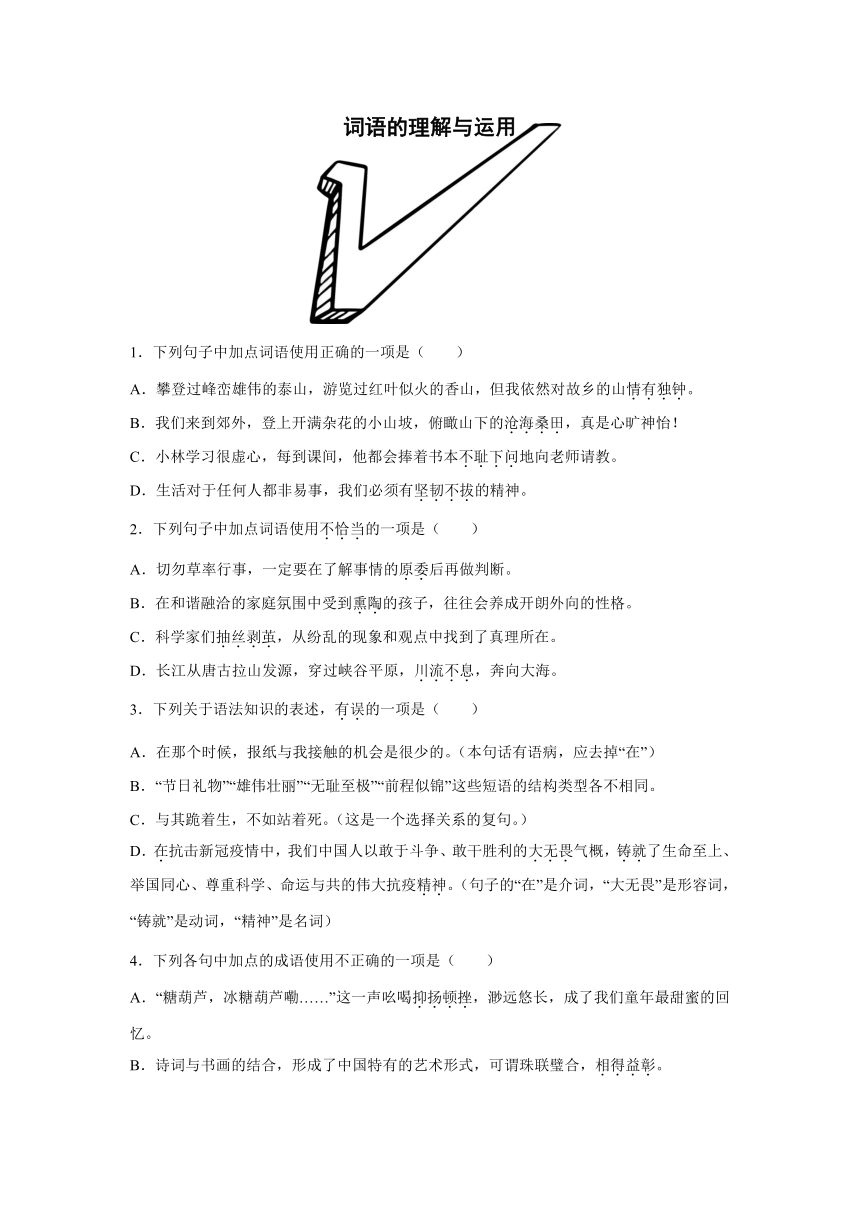 词语的理解与运用
1．下列句子中加点词语使用正确的一项是（　　）
A．攀登过峰峦雄伟的泰山，游览过红叶似火的香山，但我依然对故乡的山情有独钟。
B．我们来到郊外，登上开满杂花的小山坡，俯瞰山下的沧海桑田，真是心旷神怡！
C．小林学习很虚心，每到课间，他都会捧着书本不耻下问地向老师请教。
D．生活对于任何人都非易事，我们必须有坚韧不拔的精神。
2．下列句子中加点词语使用不恰当的一项是（　　）
A．切勿草率行事，一定要在了解事情的原委后再做判断。
B．在和谐融洽的家庭氛围中受到熏陶的孩子，往往会养成开朗外向的性格。
C．科学家们抽丝剥茧，从纷乱的现象和观点中找到了真理所在。
D．长江从唐古拉山发源，穿过峡谷平原，川流不息，奔向大海。
3．下列关于语法知识的表述，有误的一项是（　　）
A．在那个时候，报纸与我接触的机会是很少的。（本句话有语病，应去掉“在”）
B．“节日礼物”“雄伟壮丽”“无耻至极”“前程似锦”这些短语的结构类型各不相同。
C．与其跪着生，不如站着死。（这是一个选择关系的复句。）
D．在抗击新冠疫情中，我们中国人以敢于斗争、敢于胜利的大无畏气概，铸就了生命至上、
举国同心、尊重科学、命运与共的伟大抗疫精神。（句子的“在”是介词，“大无畏”是形容词，
“铸就”是动词，“精神”是名词）
4．下列各句中加点的成语使用不正确的一项是（　　）
A．“糖葫芦，冰糖葫芦嘞……”这一声吆喝抑扬顿挫，渺远悠长，成了我们童年最甜蜜的回
忆。
B．诗词与书画的结合，形成了中国特有的艺术形式，可谓珠联璧合，相得益彰。